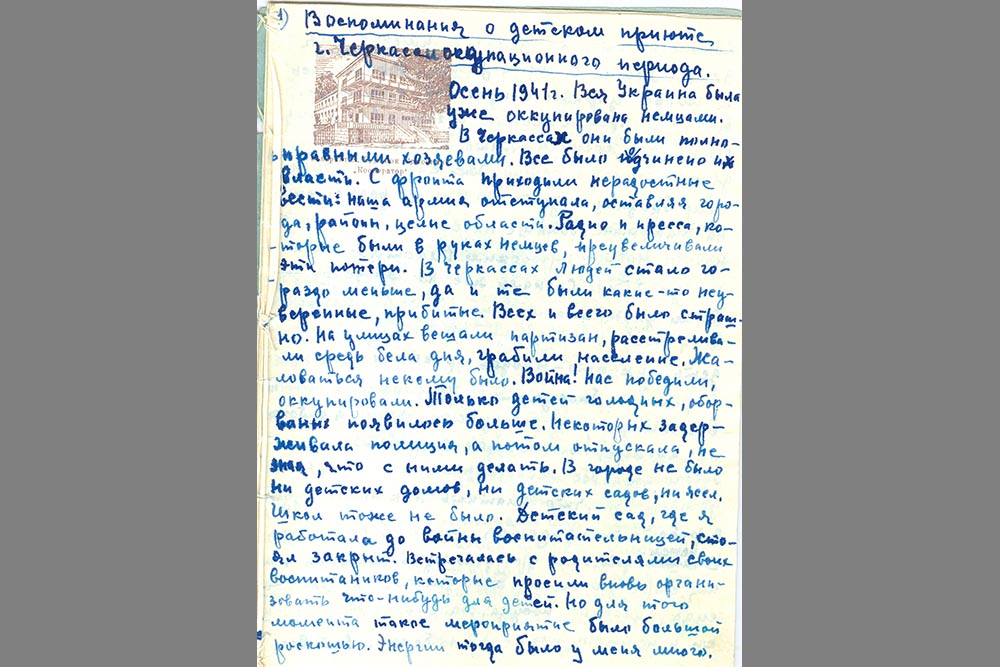 1) Воспоминания о детском приюте
г. Черкассы оккупационного периода.
Осень 1941г. Вся Украина была
уже оккупирована немцами.
В Черкассах они были полно-
правными хозяевами. Все было подчинено их
власти. С фронта приходили нерадостные
вести: наша армия отступала, оставляя горо-
да, районы, целые области. Радио и пресса, ко-
торые были в руках немцев, преувеличивали
эти потери. В Черкассах людей стало го-
раздо меньше, да и те были какие-то неу-
веренные, прибитые. Всех и всего было страш-
но. На улицах вешали партизан, расстрелива-
ли средь бела дня, грабили население. Жа-
ловаться некому было. Война! Нас победили,
оккупировали. Только детей голодных, обор-
ваных появилось больше. Некоторых задер-
живала полиция, а потом отпускала, не
зная, что с ними делать. В городе не было
ни детских домов, ни детских садов, ни ясел.
Школ тоже не было. Детский сад, где я
работала до войны воспитательницей, сто-
ял закрыт. Встречалась с родителями своих
воспитаников, которые просили вновь органи-
зовать что-нибудь для детей. Но для того
момента такое мероприятие было большой
роскошью. Энергии тогда было у меня много.